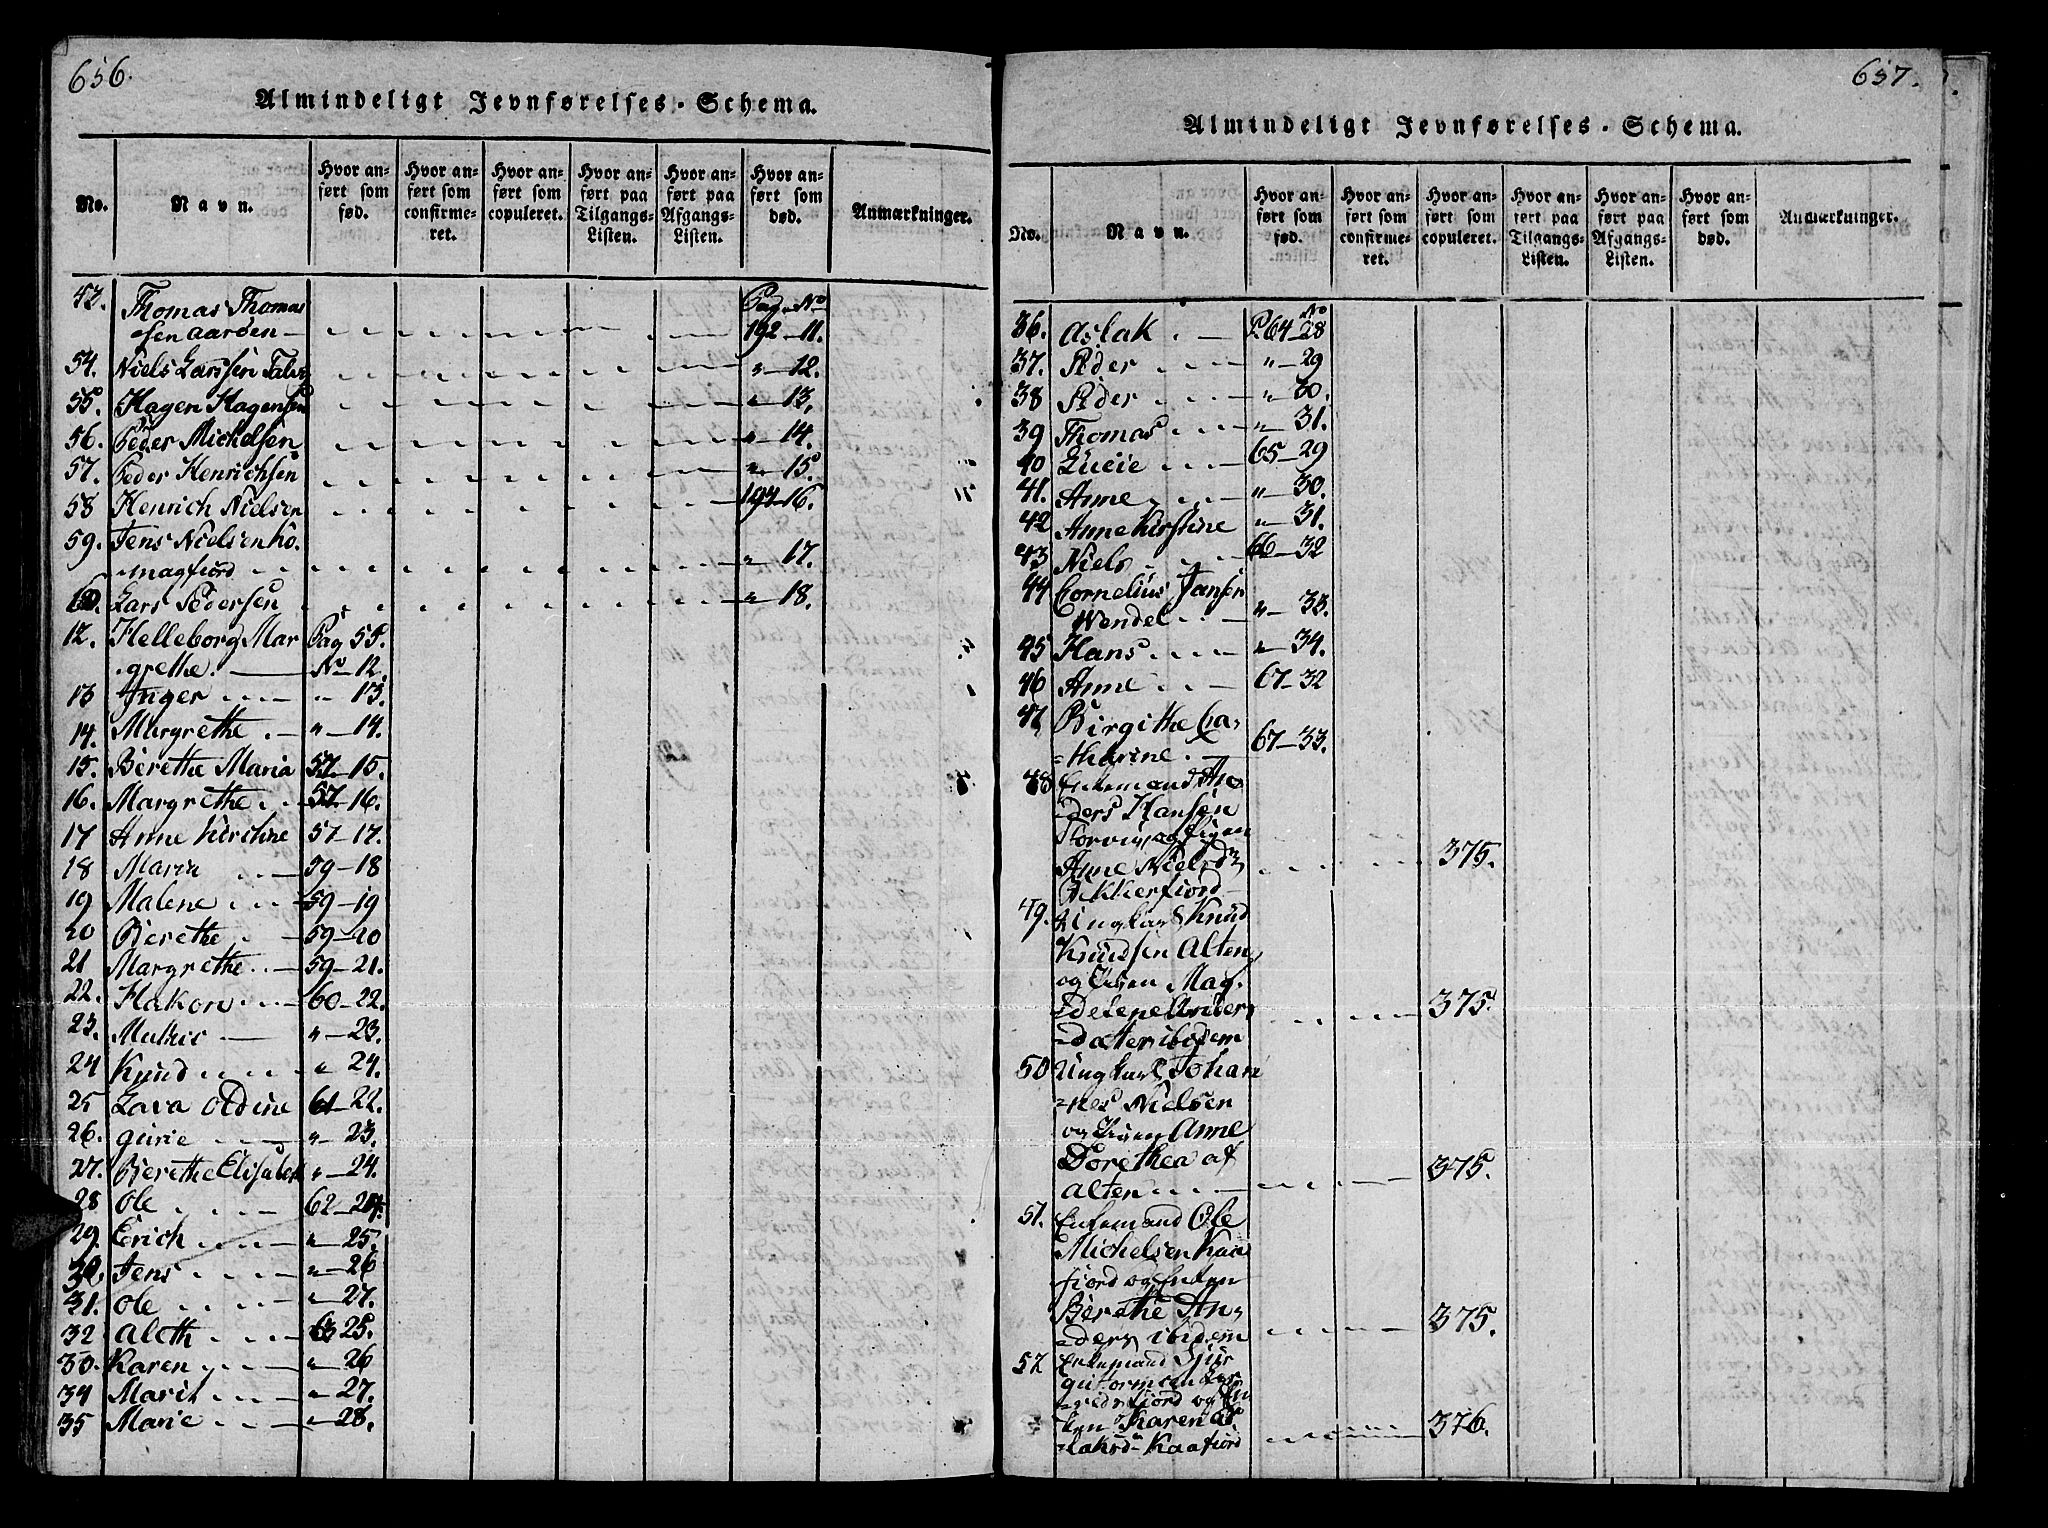 656.
Almindeligt Jevnførelses-Schema.
No.
Navn.
Hvor anført som fød.
Hvor anført som confirmeret.
Hvor anført som copuleret.
Hvor anført paa Tilgangs-Listen.
Hvor anført paa Afgangs-Listen.
Hvor anført som død.
Anmærkninger.
Pag. No
53. Thomas Thomas
sen Aarøen 192-11.
54. Niels Larssen " 12.
55. Hagen Hagensen " 13.
56. Peder Michelsen " 14.
57. Peder Henrichsen " 15.
58 Henrich Nielsen 16.
59. Jens Nielsen Ko-
magfiord " 17.
60. Lars Pedersen " 18.
12. Helleborg Mar Pag 55.
grethe. No 12.
13 Inger " 13.
14. Margrethe " 14.
15. Berethe Maria 57-15.
16. Margrethe 57-16.
17 Anne Kirstine 57-17.
18 Maria 59-18
19 Malene 59-19
20 Berethe 59-20
21 Margrethe 59-21.
22. Hakon 60-22.
23. Mathis " 23.
24 Knud " 24.
25 Lava Oldine 61-22.
26. Gurie " 23.
27. Berethe Elisabeth " 24.
28 Ole 62-24.
29. Erich " 25.
30. Jens " 26
31. Ole " 27.
32 Aleth 63 25.
33. Karen " 26
34 Marit " 27.
35 Marie " 28.
657.
Almindeligt Jevnførelses-Schema.
No.
Navn.
Hvor anført som fød.
Hvor anført som confirmeret.
Hvor anført som copuleret.
Hvor anført paa Tilgangs-Listen.
Hvor anført paa Afgangs-Listen.
Hvor anført som død.
Anmærkninger.
No
36. Aslak P. 64-28
37. Peder " 29
38 Peder " 30.
39 Thomas " 31.
40 Lucie 65-29
41. Anne " 30.
42 Anne Kirstine " 31.
43 Niels 66-32
44 Cornelius Jansen
Wendel " 33.
45 Hans " 34.
46 Anne 67-32
47 Birgithe Ca-
tharine 67-33.
48 Enkemand An-
ders Hansen
og Pigen
Anne Nielsd.
Bekkerfiord 375.
49. Ungkarl Knud
Knudsen Alten
og Pigen Mag-
delene Anders
datter ibidem 375.
50 Ungkarl Johan
nes Nielsen
og Pigen Anne
Dorethea af
Alten 375.
51. Enkemand Ole
Michelsen Kaa
fiord og Enken
Berethe An-
ders ibidem 375.
52 Enkemand Sjur
Guttormsen
fiord og En
ken Karen As
laksd. Kaafiord 376.